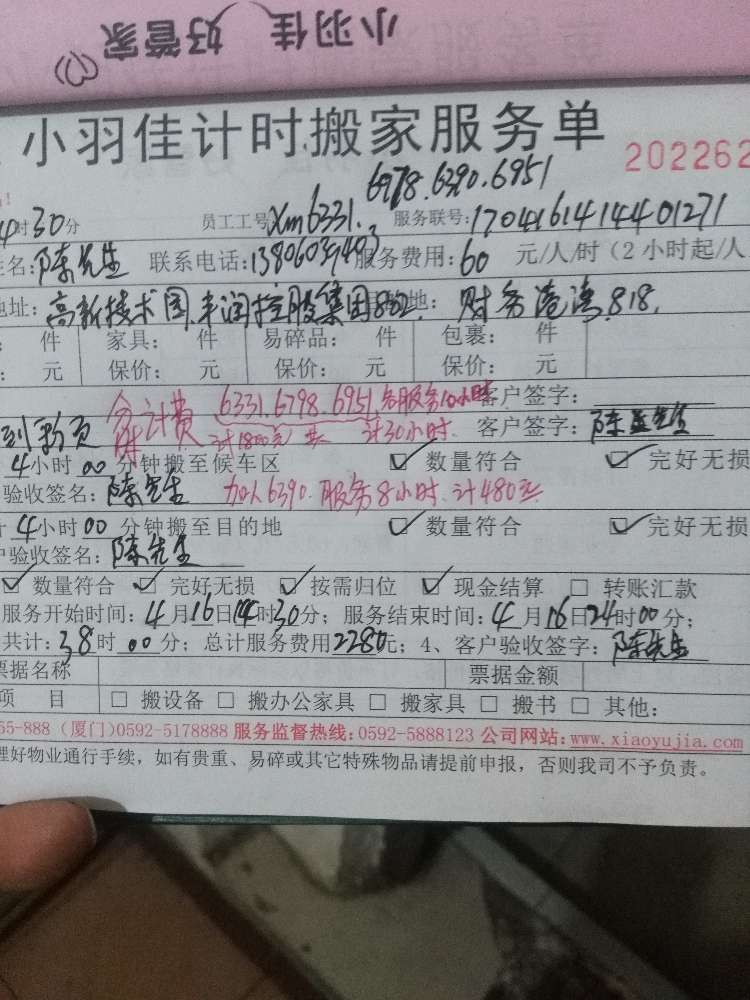 小羽佳 好管家
小羽佳计时搬家服务单
202262
6978.6390.6951
时30分 员工工号:xm6331. 服务联号:1704161414401271
姓名:陈先生 联系电话: 服务费用:60 元/人/时（2小时起/人
地址:高新技术园.丰润控股集团802. 的地: 财务港湾.818.
: 件 家具: 件 易碎品: 件 包裹: 件
: 元 保价: 元 保价: 元 保价: 元
合计计费 6331.6798.6951 各服务10小时 客户签字:
计1800元 共计30小时. 客户签字:
4小时00分钟搬至候车区 ☑ 数量符合 ☑ 完好无损
验收签名:陈先生 加人6390.服务8小时.计480元
计4小时00分钟搬至目的地 ☑ 数量符合 ☑ 完好无损
户验收签名:陈先生
☑ 数量符合 ☑ 完好无损 ☑ 按需归位 ☑ 现金结算 □ 转账汇款
服务开始时间:4月16日14时30分; 服务结束时间:4月16日24时00分;
共计:38时00分; 总计服务费用2280元; 4、客户验收签字:陈先生
票据名称 票据金额
项 目 □ 搬设备 □ 搬办公家具 □ 搬家具 □ 搬书 □ 其他:
65-888（厦门)0592-5178888 服务监督热线:0592-5888123 公司网站:www.xiaoyujia.com
理好物业通行手续，如有贵重、易碎或其它特殊物品请提前申报，否则我司不予负责。